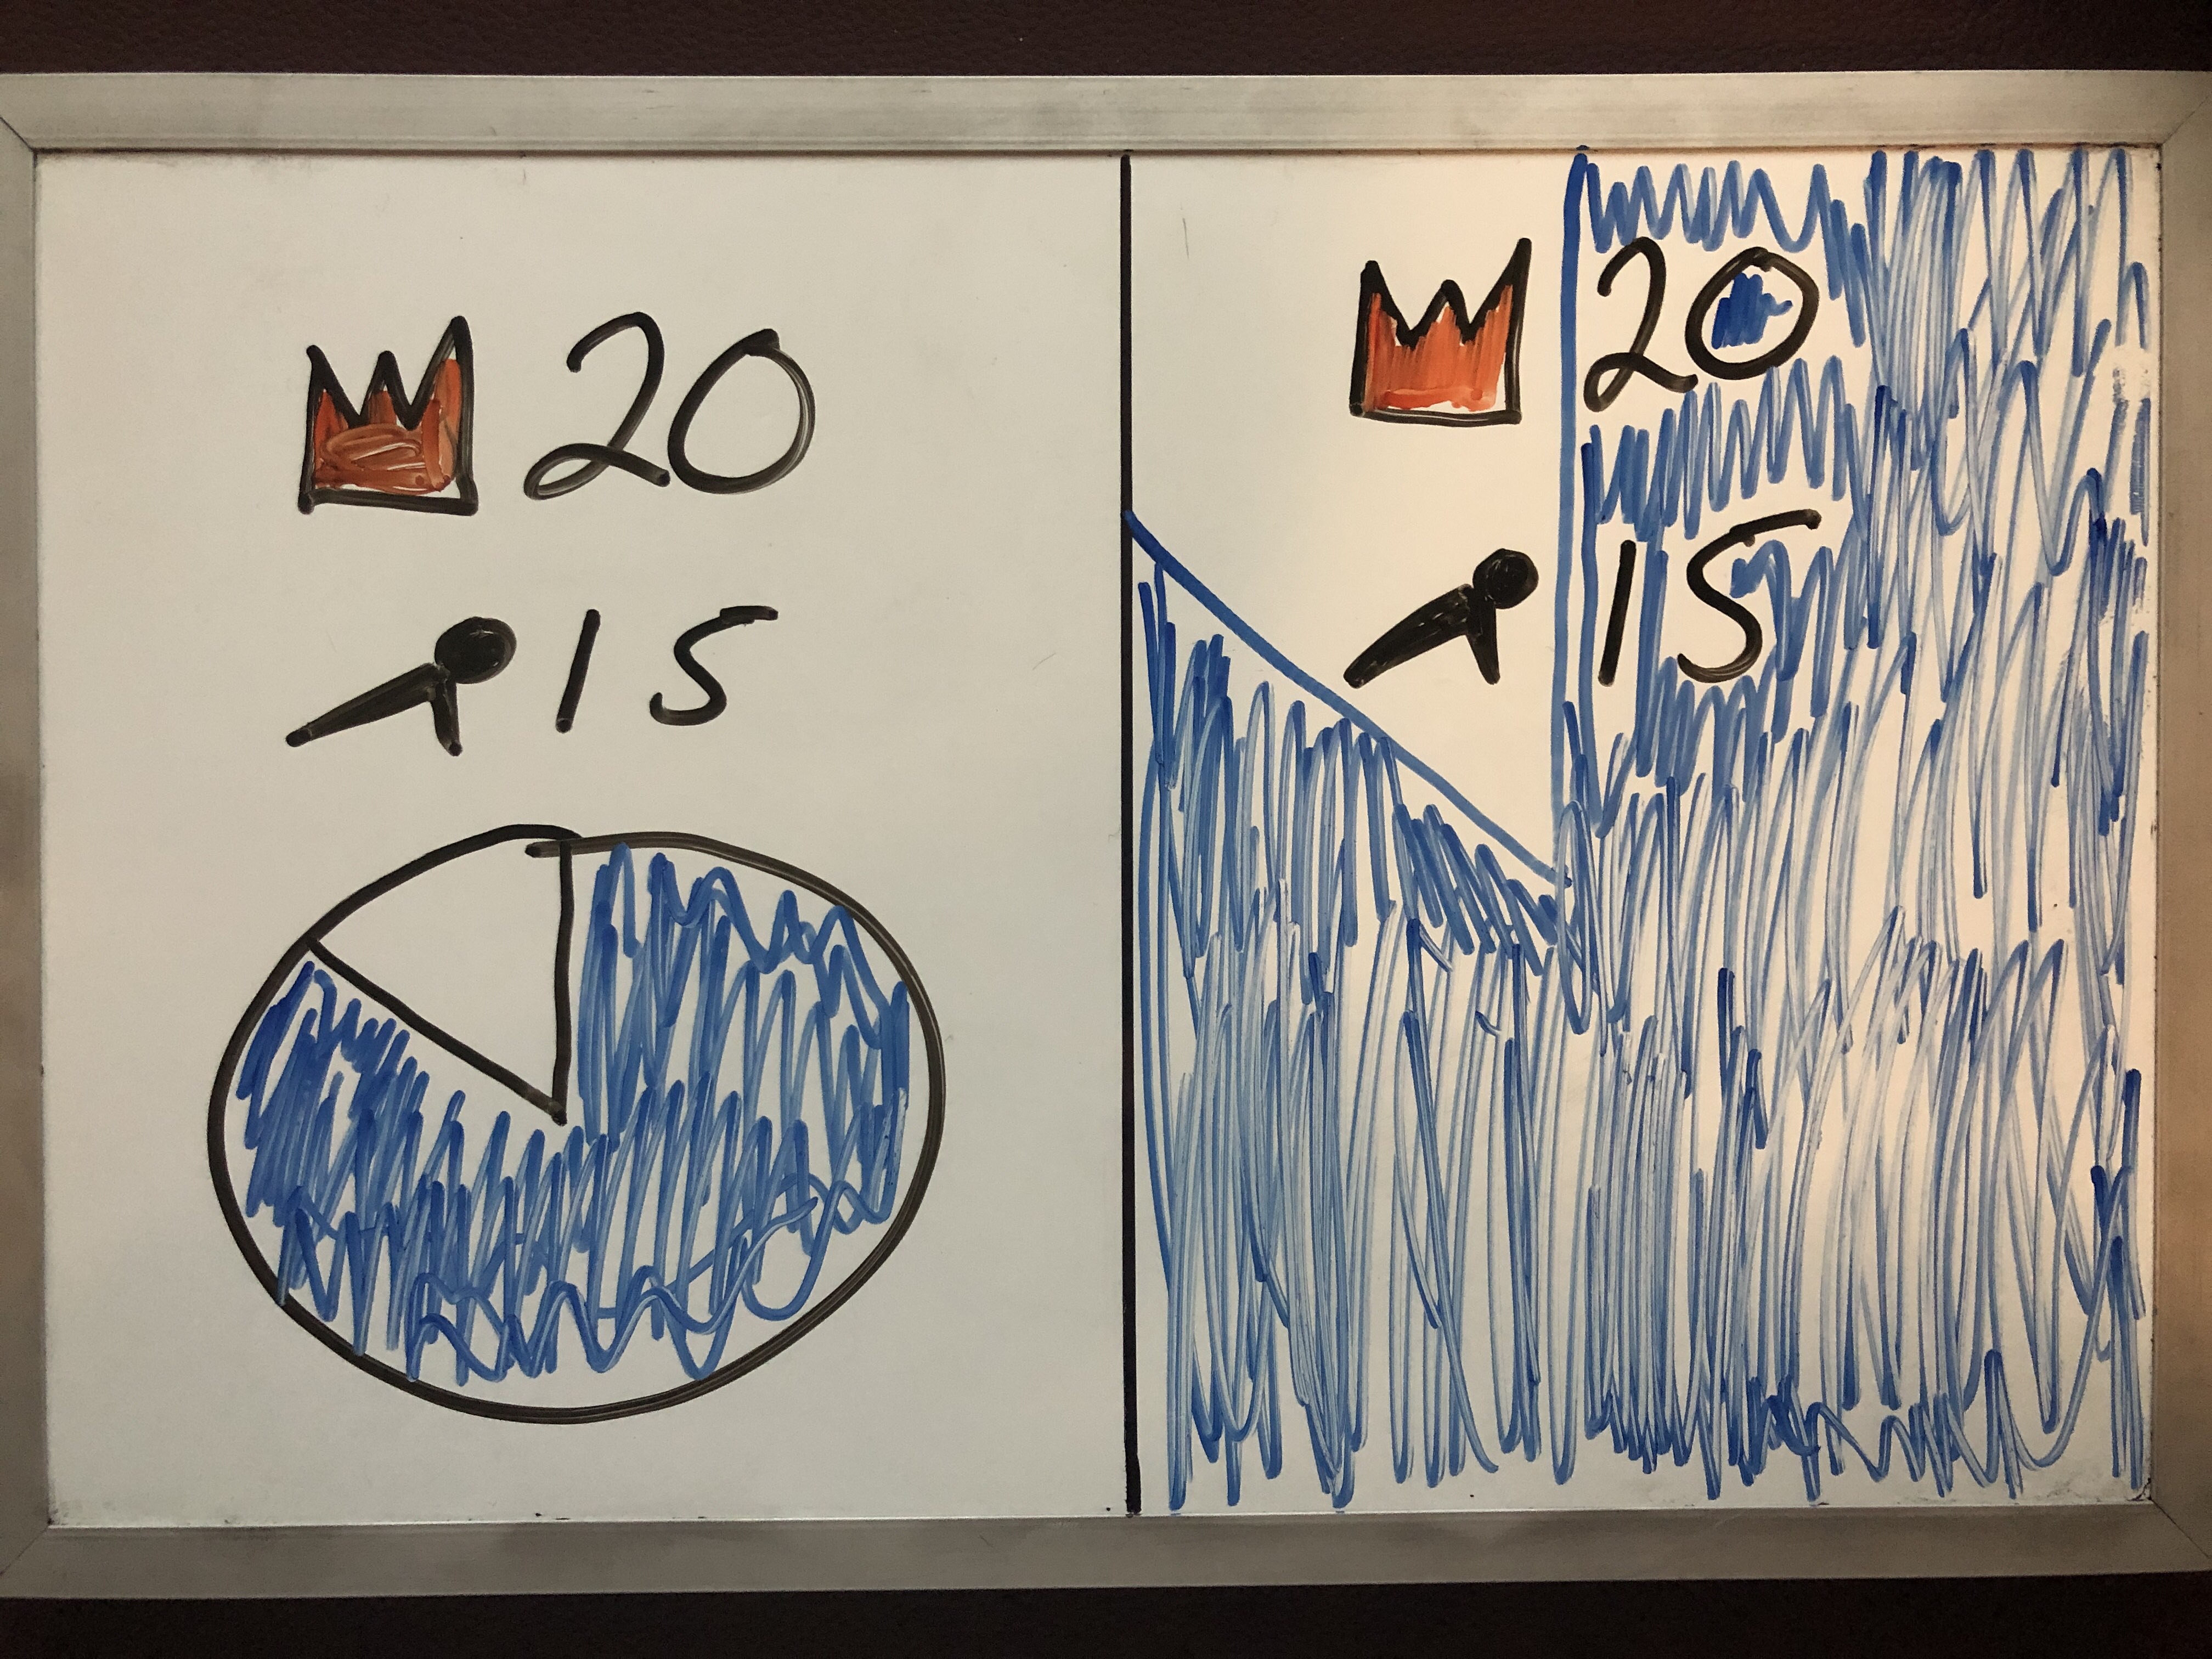 20
15
20
15